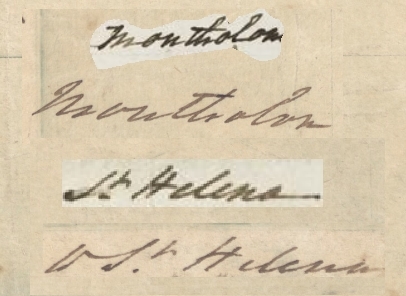 Montholon
Montholon
St. Helena
St. Helena